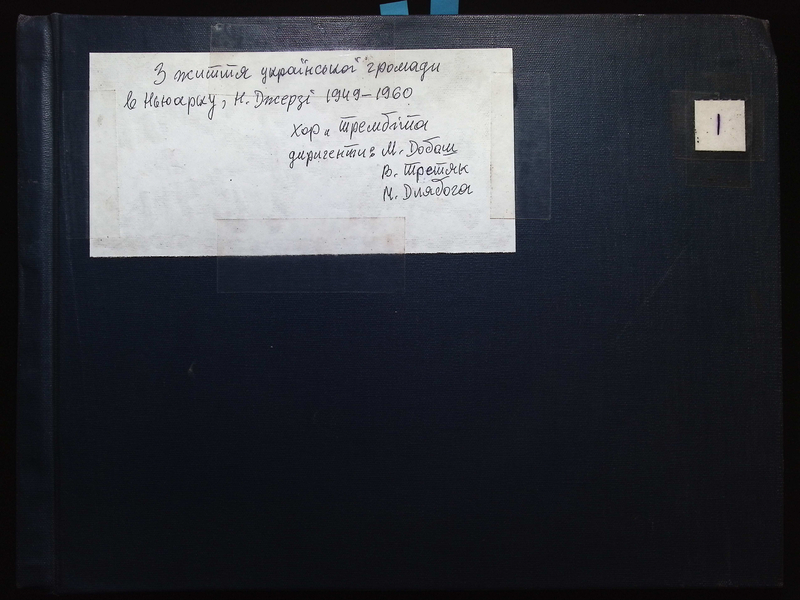 З життя української громади
в Ньюарку, Н. Джерзі 1949–1960
хор „Трембіта
диригенти: М. Добош
В. Третяк
М. Длябога
1